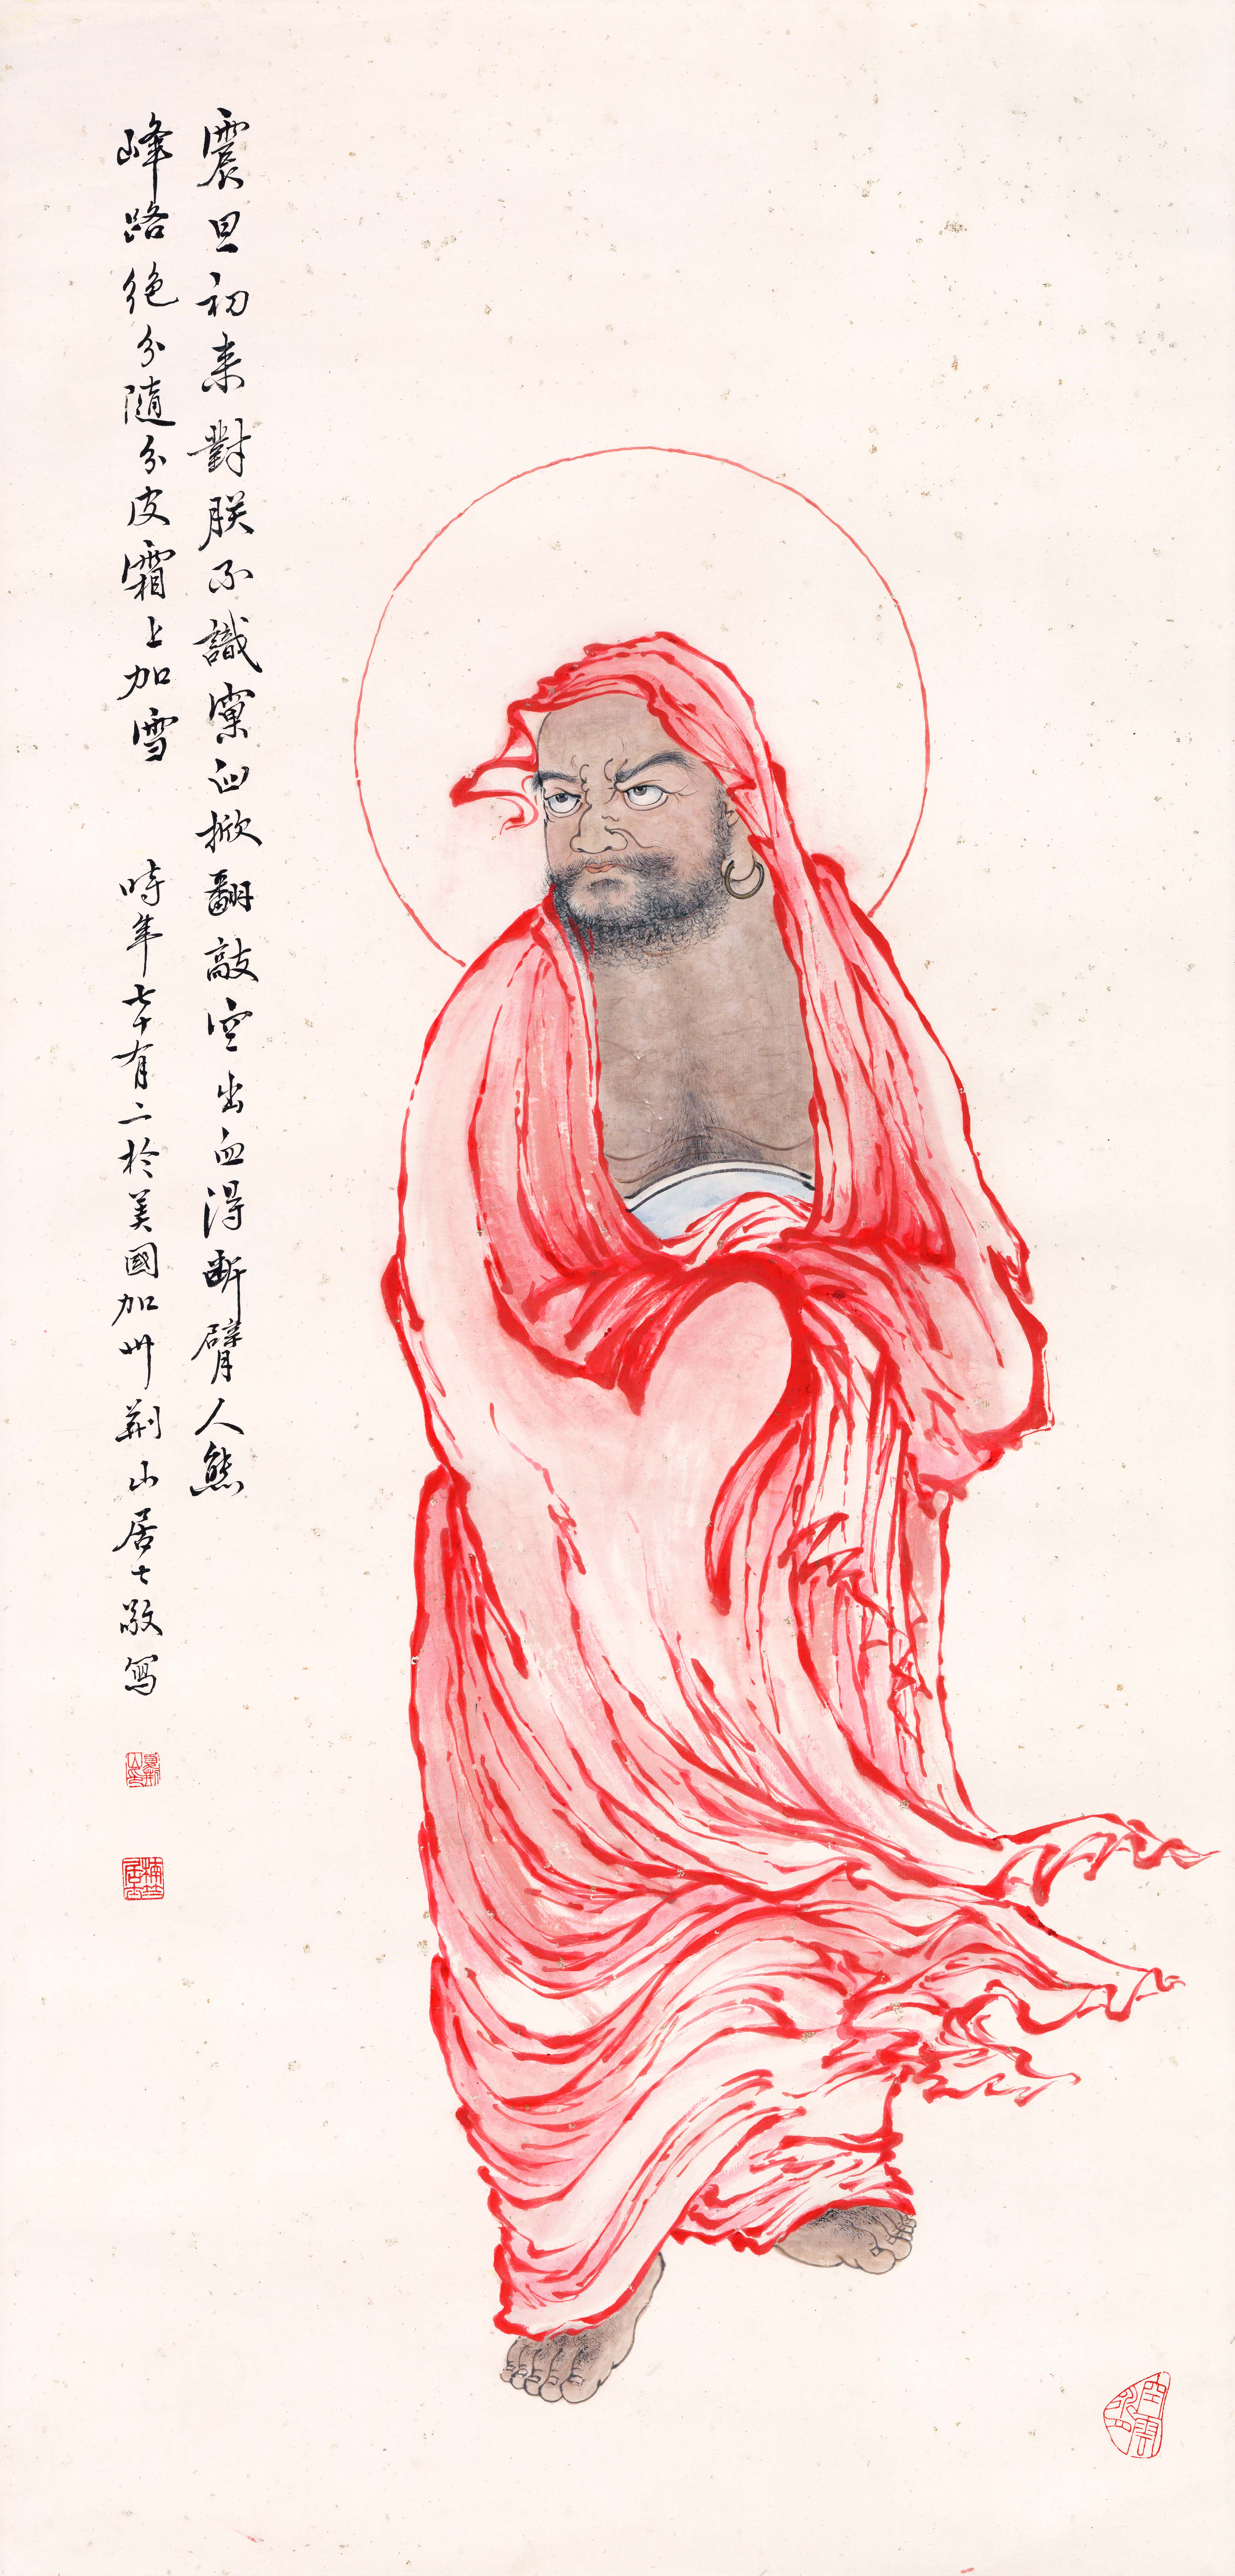 震旦初来對朕不識窠臼掀翻敲空出血得斷臂人熊
峰路絶分隨分皮霜上加雪 時年七十有二於美國加州荊山居士敬寫